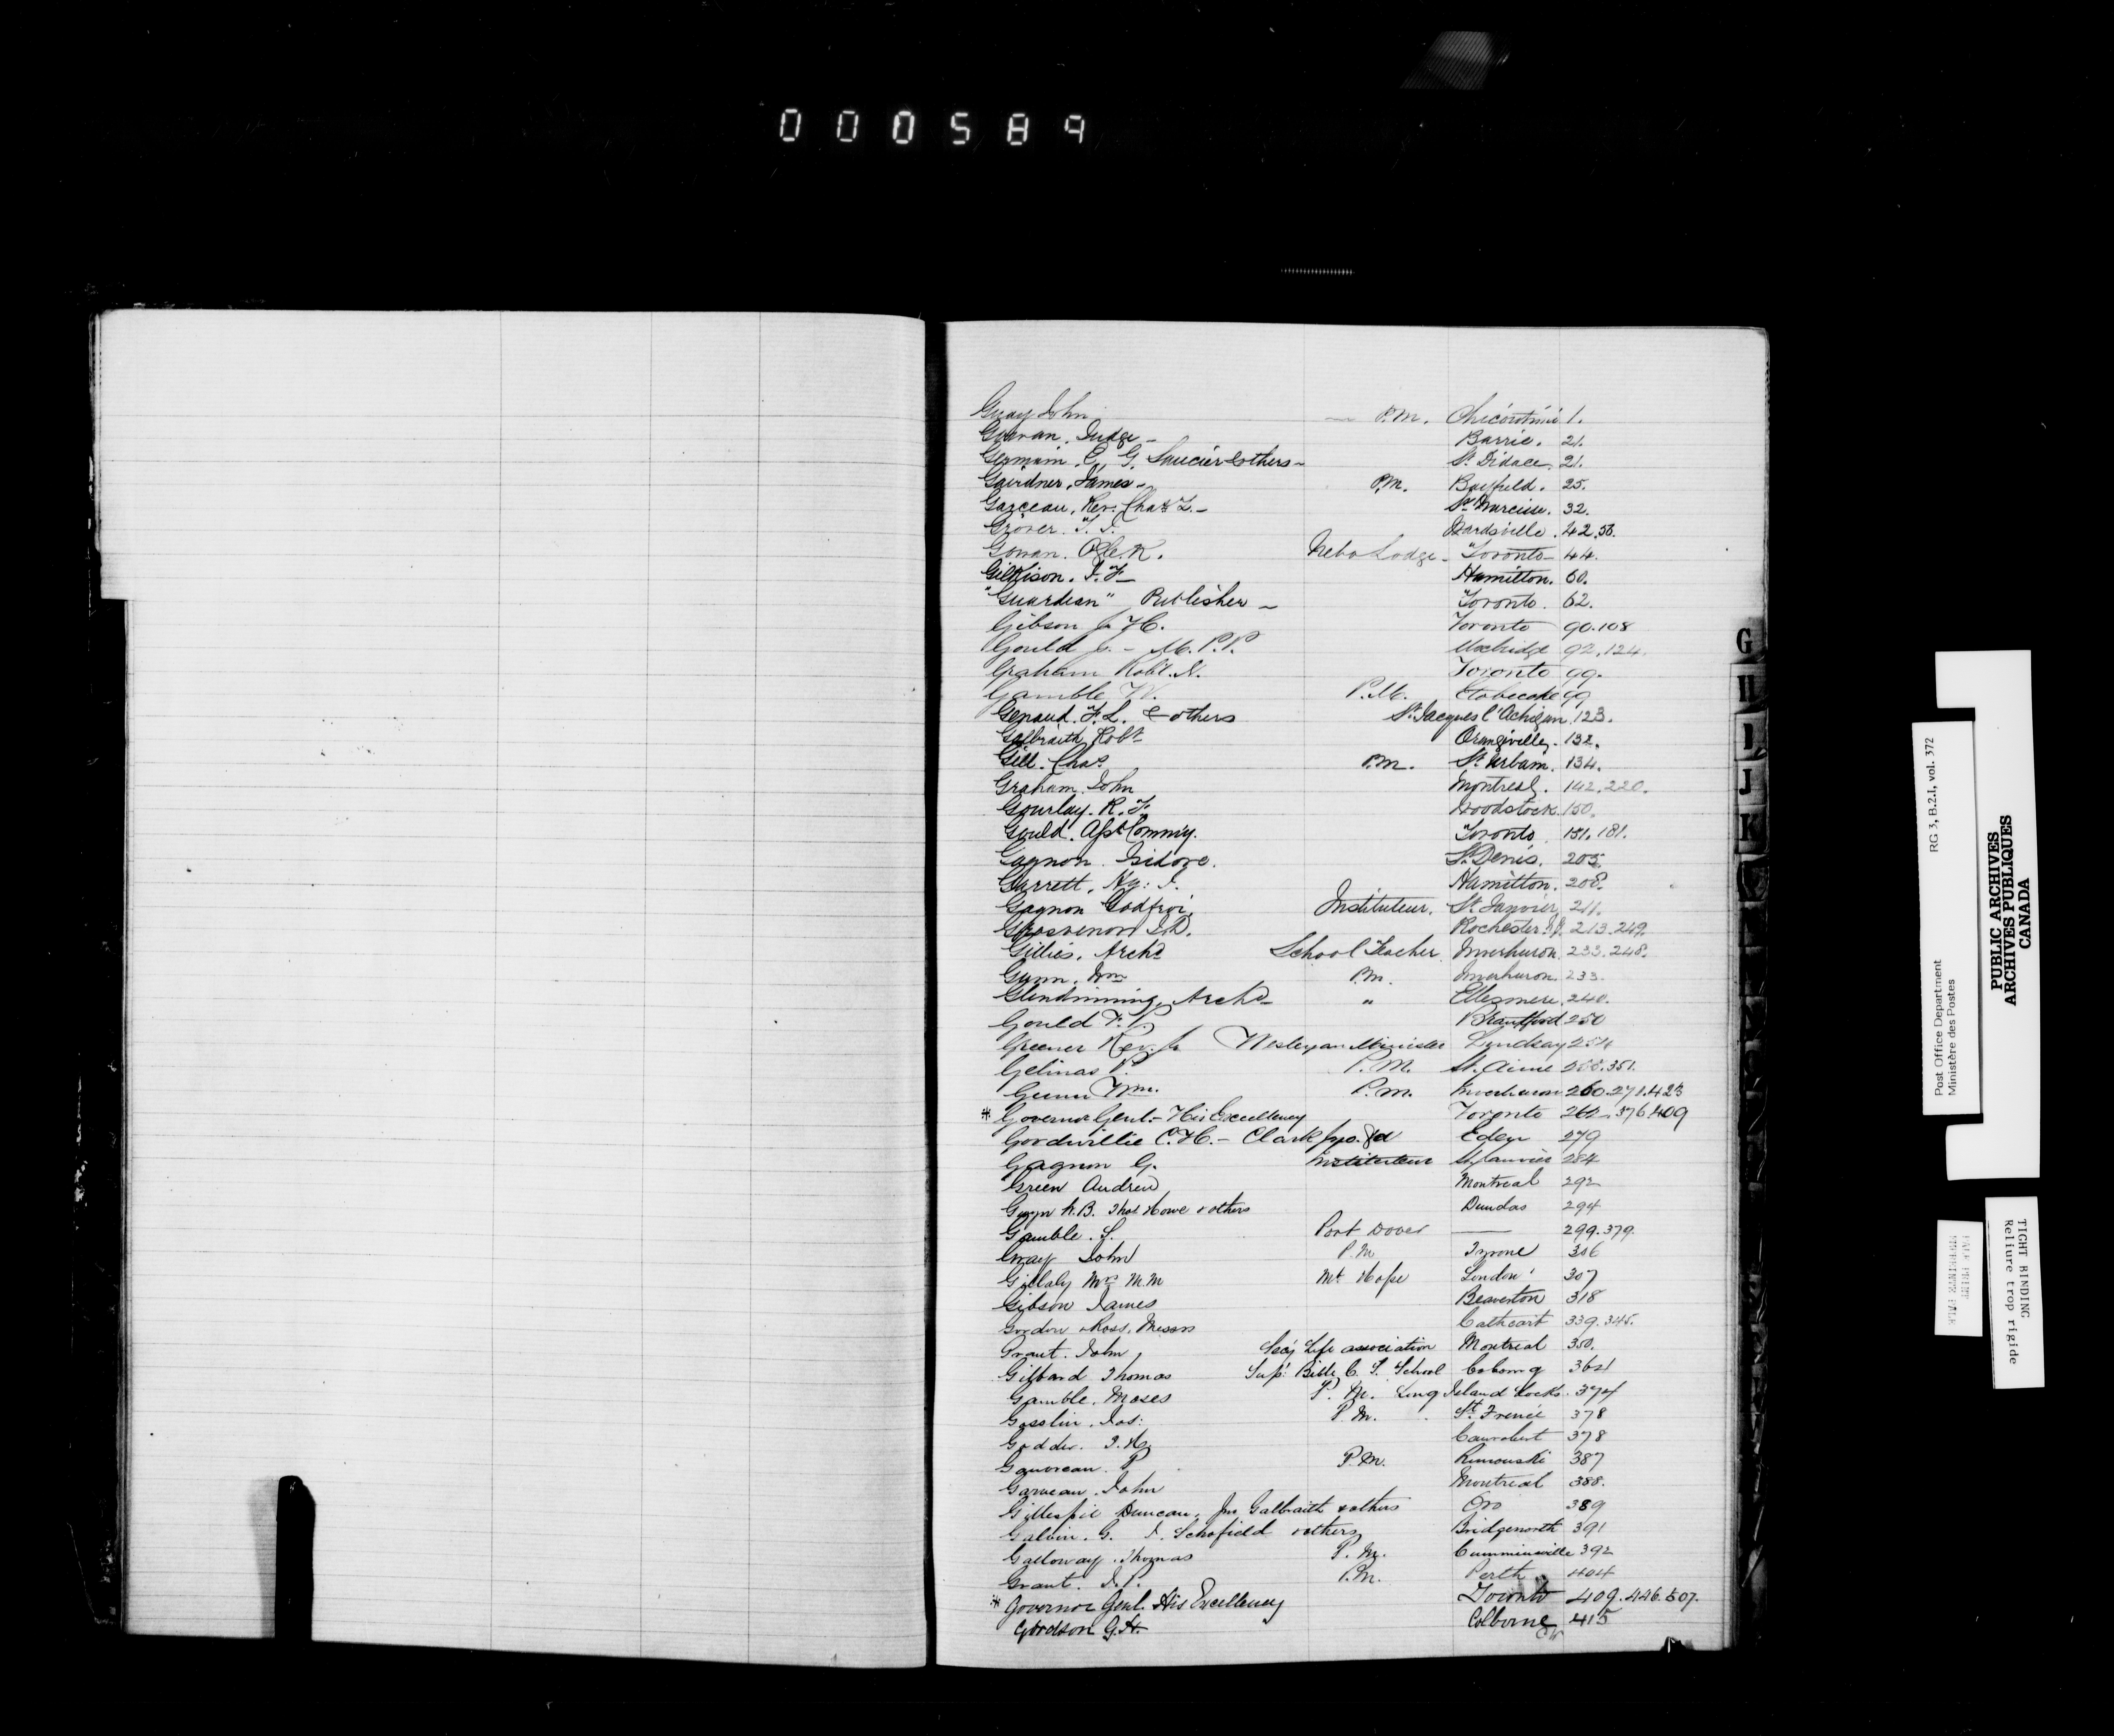 000589
Guay John P.M. Chicoutimi 1.
Gowan. Judge Barrie. 21.
Germain. C, G. Saucier & others St Didace. 21.
Gairdner, James P.M. Bayfield. 25.
Garceau, Rev. Chas Z. St Narcisse. 32.
Grover. T. J. Wardsville. 42.50.
Gowan. Ogle. R. Nebo Lodge Toronto 44.
Gilkison. J. F Hamilton. 60.
"Guardian" Publisher Toronto. 62.
Gibson J. H. Toronto 90.108
Gould J. - M.P.P. Uxbridge 92.124.
Graham Robt. N. Toronto 99.
Gamble W. P.M. Etobecoke 99
Genaud. F. L. & others St Jacques l'Achigan. 123.
Galbraith Robt Orangeville. 132.
Gill. Chas P.M. St Urbain. 134.
Graham. John Montreal. 142.220.
Gourlay. R. F. Woodstock. 150.
Gould. Asst Commiy. Toronto 151. 181.
Gagnon Isidore. St Denis. 205.
Garrett, Hy: J. Hamilton. 208.
Gagnon Godfroi, Instituteur. St Janvier 211.
Grosvenor L.D. Rochester N.Y. 213.249.
Gillies, Archd School Teacher Inverhuron. 233.248.
Gunn, Wm P.M. Inverhuron. 233.
Glendinning, Archd " Ellesmere. 240.
Gould F. P. Brantford 250
Greener Rev. J. Wesleyan Minister Lyndsay 254
Gelinas P. P.M. St. Aimé 258.351.
Gunn Wm. P.M. Inverhuron 260.271.423
* Governor Genl. - His Excellency Toronto 262.376.409
Goodwillie C.H. - Clark Eden 279
Gagnon G. Instituteur St. Janvier 284
Green Andrew Montreal 292
Gwyn H.B. Thos Howe & others Dundas 294
Gamble. S. Port Dover 299.379.
Gray John P.M Tyrone 306
Gillaly Mrs M.M Mt Hope London 307
Gibson James Beaverton 318
Gordon & Ross, Messrs Cathcart 339.345.
Grant. John Secy Life association Montreal 350.
Gilbard Thomas Supt. Bible C. S. School Cobourg 364
Gamble. Moses P. M. Long Island Locks. 374
Gosslin. Jos: P M. St Irenée 378
Geddes. J. H. 378
Gauvreau. P P.M. Rimouski 387
Garneau. John Montreal 388.
Gillespie Duncan, Jno Galbraith & others Oro 389
Galvin. G. J. Schofield & others Bridgenorth 391
Galloway. Thomas P. M. Cumminsville 392
Grant. J. P. P.M. Perth 404
* Governor Genl. His Excellency Toronto 409.446.507.
Goodson G.H. Colborne 415
CW
G
H
I
J
K
RG 3, B.2.I, vol. 372
Post Office Department
Ministère des Postes
PUBLIC ARCHIVES
ARCHIVES PUBLIQUES
CANADA
TIGHT BINDING
Reliure trop rigide
PALE PRINT